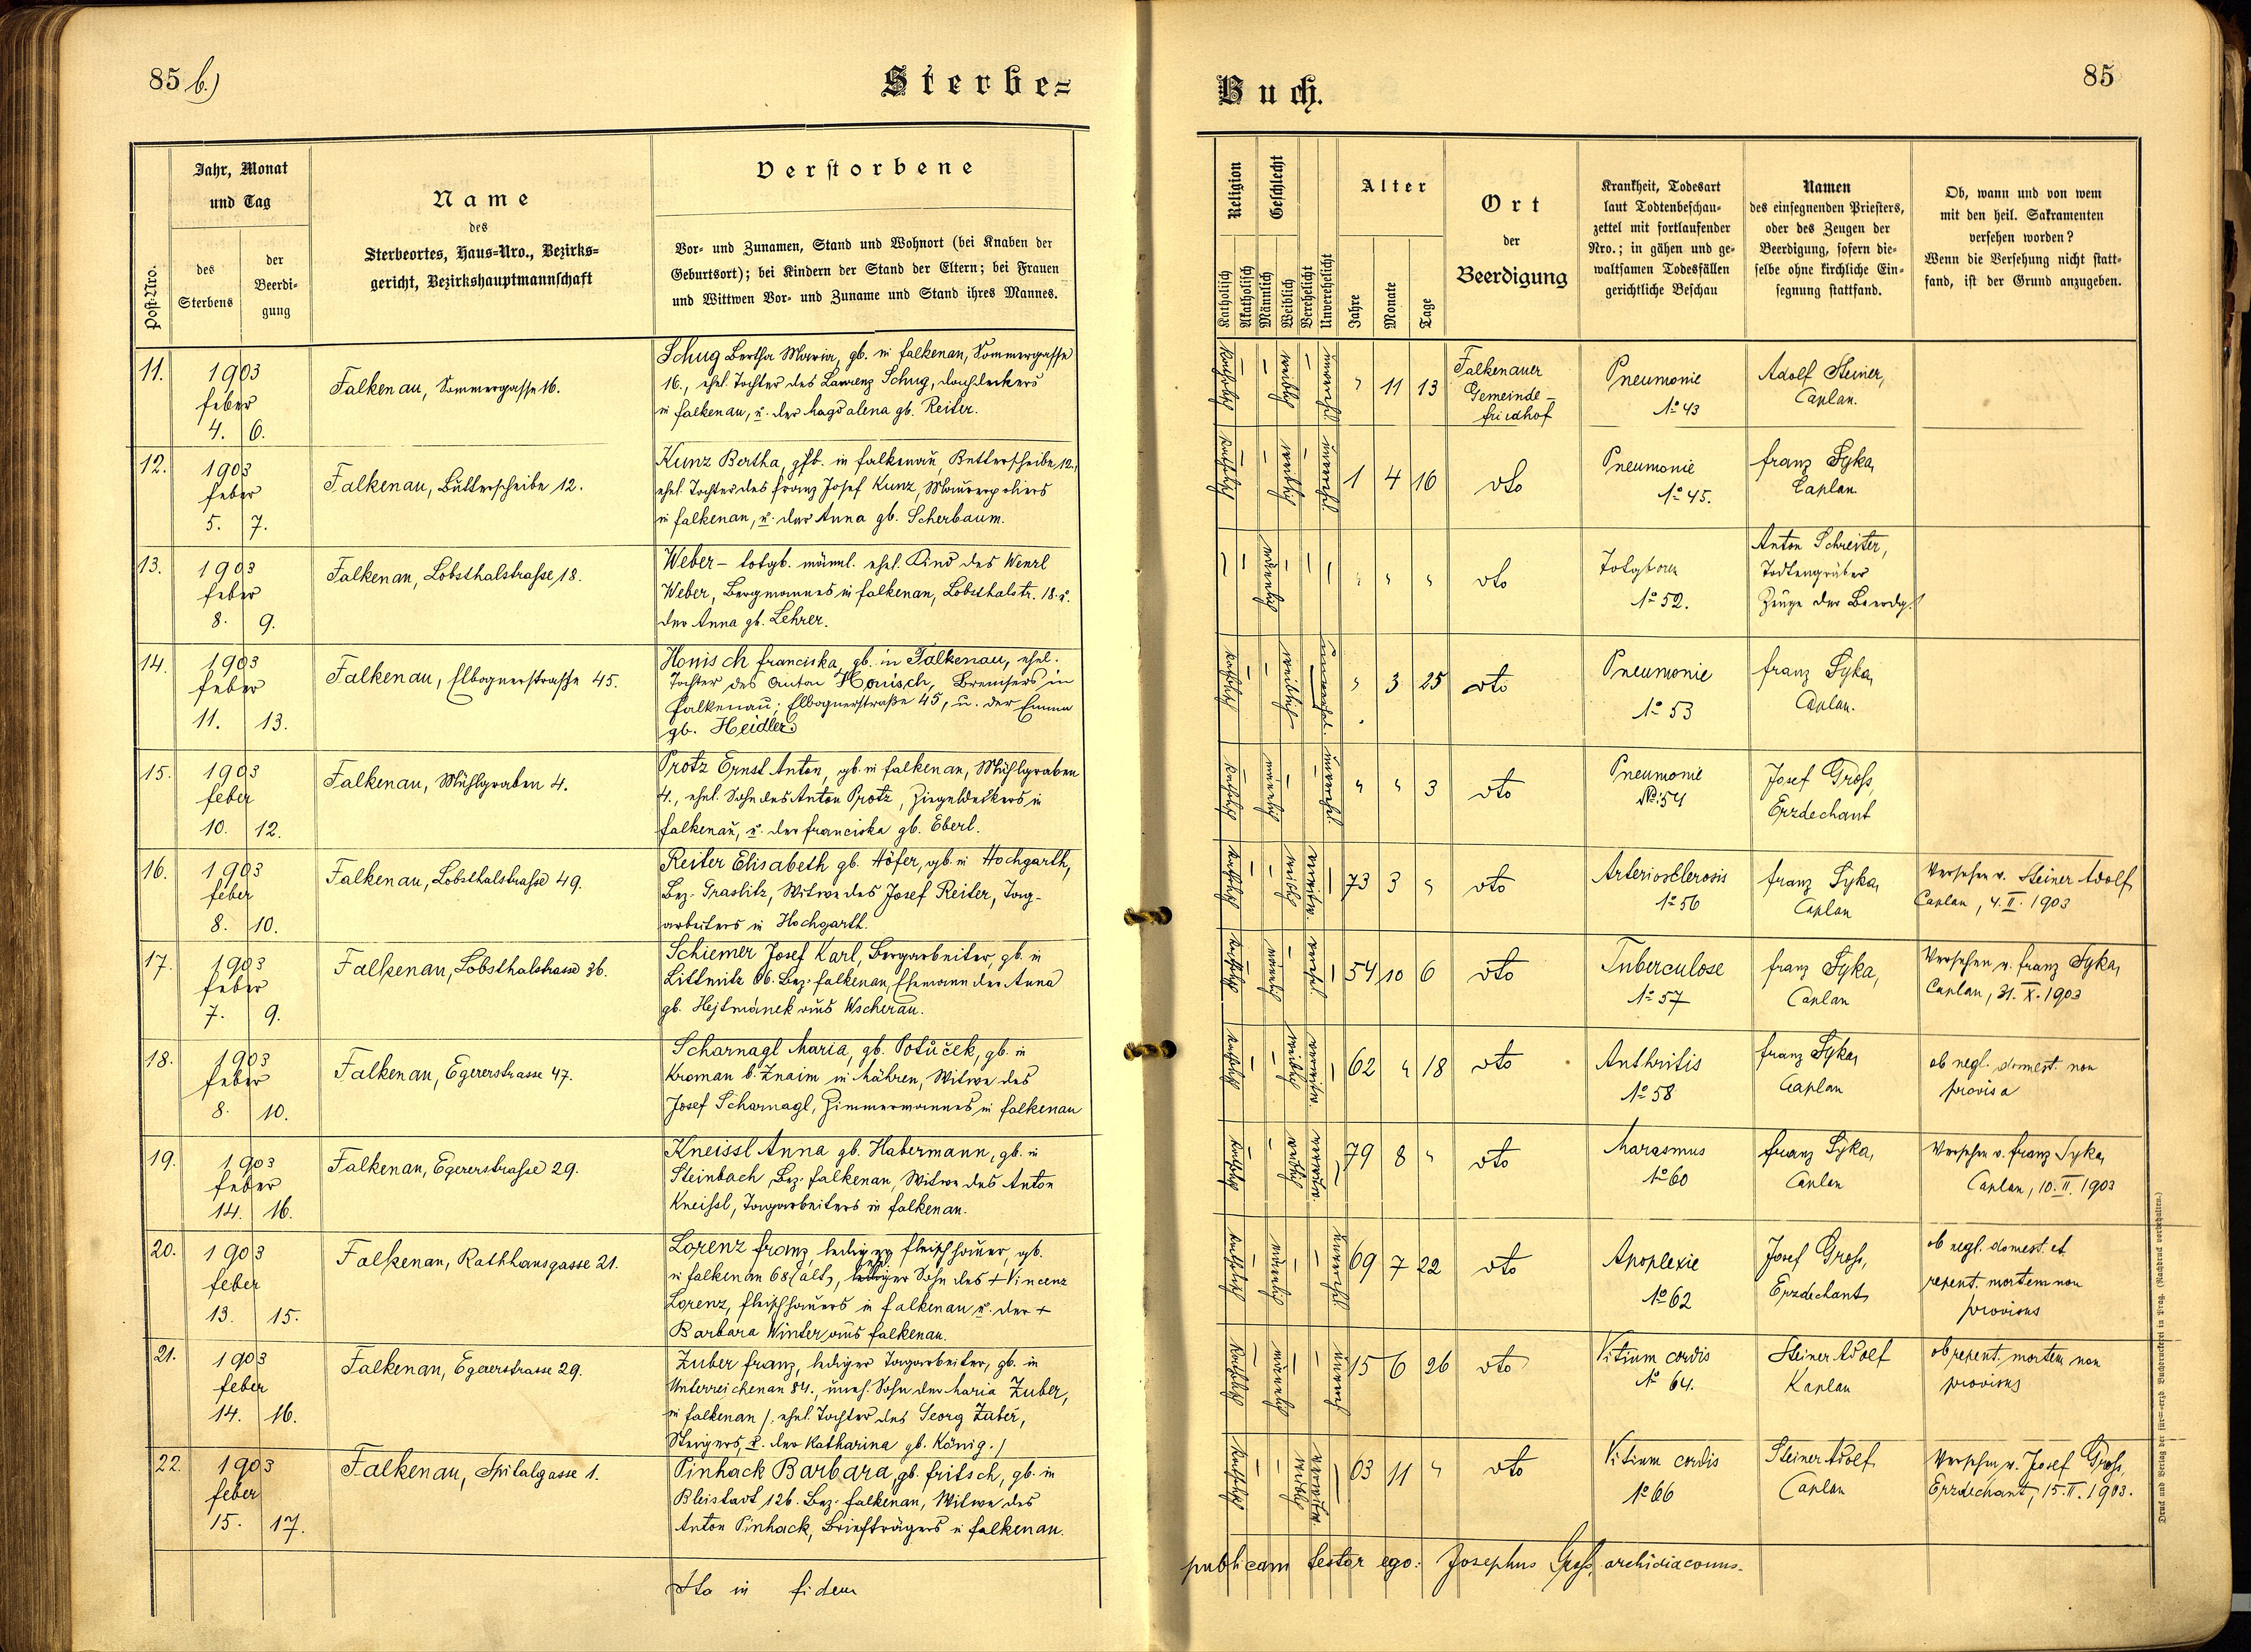 85 b.)
Sterbe=
Jahr, Monat
und Tag
Post-Nro.
des
Sterbens
der
Beerdi-
gung
Name
des
Sterbeortes, Haus-Nro., Bezirks-
gericht, Bezirkshauptmannschaft
Verstorbene
Vor- und Zunamen, Stand und Wohnort (bei Knaben der
Geburtsort); bei Kindern der Stand der Eltern; bei Frauen
und Wittwen Vor- und Zuname und Stand ihres Mannes.
11.
1903
feber
4. 6.
Falkenau, Sommergasse 16.
Schug Bertha Maria, gb. in Falkenau, Sommergasse
16., ehel. Tochter des Laurenz Schug, Dachdeckers
in Falkenau, u. der Magdalena gb. Reiter.
12.
1903
feber
5. 7.
Falkenau, Butterscheibe 12.
Kunz Bertha, gb. in Falkenau, Butterscheibe 12.,
ehel. Tochter des Franz Josef Kunz, Maurerpoliers
in Falkenau, u. der Anna gb. Scherbaum.
13.
1903
feber
8. 9.
Falkenau, Lobsthalstrasse 18.
Weber – totgb. männl. ehel. Kind des Wenzl
Weber, Bergmannes in Falkenau, Lobsthalstr. 18. u.
der Anna gb. Lehrer.
14.
1903
feber
11. 13.
Falkenau, Elbognerstrasse 45.
Honisch Franciska, gb. in Falkenau, ehel.
Tochter des Anton Honisch, Bremsers in
Falkenau, Elbognerstraße 45, u. der Emma
gb. Heidler
15.
1903
feber
10. 12.
Falkenau, Mühlgraben 4.
Protz Ernst Anton, gb. in Falkenau, Mühlgraben
4., ehel. Sohn des Anton Protz, Ziegeldeckers in
Falkenau, u. der Franciska gb. Eberl.
16.
1903
feber
8. 10.
Falkenau, Lobsthalstrasse 49.
Reiter Elisabeth gb. Höfer, gb. in Hochgarth,
Bez. Graslitz, Witwe des Josef Reiter, Tag-
arbeiters in Hochgarth.
17.
1903
feber
7. 9.
Falkenau, Lobsthalstrasse 36.
Schiemer Josef Karl, Bergarbeiter, gb. in
Littmitz 66. Bez. Falkenau, Ehemann der Anna
gb. Hejtmánek aus Wscherau.
18.
1903
feber
8. 10.
Falkenau, Egererstrasse 47.
Scharnagl Maria, gb. Potůček, gb. in
Kroman b. Znaim in Mähren, Witwe des
Josef Scharnagl, Zimmermannes in Falkenau
19.
1903
feber
14. 16.
Falkenau, Egererstrasse 29.
Kneissl Anna gb. Habermann, gb. in
Steinbach Bez. Falkenau, Witwe des Anton
Kneissl, Tagarbeiters in Falkenau.
20.
1903
feber
13. 15.
Falkenau, Rathhausgasse 21.
Lorenz Franz, lediger Fleischhauer, gb.
in Falkenau 68 (alt), Sohn des + Vincenz
Lorenz, Fleischhauers in Falkenau u. der +
Barbara Winter aus Falkenau.
21.
1903
feber
14. 16.
Falkenau, Egererstrasse 29.
Zuber Franz, lediger Tagarbeiter, gb. in
Unterreichenau 84., uneh. Sohn der Maria Zuber,
in Falkenau /. ehel. Tochter des Georg Zuber,
Steigers, u. der Katharina gb. König. /
22.
1903
feber
15. 17.
Falkenau, Spitalgasse 1.
Pinhack Barbara, gb. Fritsch, gb. in
Bleistadt 126. Bez. Falkenau, Witwe des
Anton Pinhack, Briefträgers in Falkenau.
Ita in fidem
Buch.
85
Religion
Geschlecht
Katholisch
Akatholisch
Männlich
Weiblich
Verehelicht
Unverehelicht
Alter
Jahre
Monate
Tage
Ort
der
Beerdigung
Krankheit, Todesart
laut Todtenbeschau-
zettel mit fortlaufender
Nro.; in gähen und ge-
waltsamen Todesfällen
gerichtliche Beschau
Namen
des einsegnenden Priesters,
oder des Zeugen der
Beerdigung, sofern die-
selbe ohne kirchliche Ein-
segnung stattfand.
Ob, wann und von wem
mit den heil. Sakramenten
versehen worden?
Wenn die Versehung nicht statt-
fand, ist der Grund anzugeben.
" 11 13
Falkenauer
Gemeinde-
friedhof
Pneumonie
No 43
Adolf Steiner,
Caplan.
1 4 16
dto
Pneumonie
No 45.
Franz Syka,
Caplan
" " "
dto
Totgboren
No 52.
Anton Schreiter,
Todtengräber
Zeuge der Beerdg.
" 3 25
dto
Pneumonie
No 53
Franz Syka,
Caplan.
" " 3
dto
Pneumonie
No. 54
Josef Gross,
Erzdechant
73 3 "
dto
Arteriosclerosis
No 56
Franz Syka,
Caplan
Versehen v. Steiner Adolf,
Caplan, 4. II. 1903
54 10 6
dto
Tuberculose
No 57
Franz Syka,
Caplan
Versehen v. Franz Syka,
Caplan, 31. X. 1903
62 " 18
dto
Anthritis
No 58
Franz Syka,
Caplan
ob negl. domest. non
provisa
79 8 "
dto
Marasmus
No 60
Franz Syka,
Caplan
Versehen v. Franz Syka,
Caplan, 10. II. 1903
69 7 22
dto
Apoplexie
No 62
Josef Gross,
Erzdechant
ob negl. domest. et
repent. mortem non
provisus
15 6 26
dto
Vitium cordis
No 64.
Steiner Adolf
Kaplan
ob repent. mortem non
provisus
63 11 "
dto
Vitium cordis
No 66
Steiner Adolf
Caplan
Versehen v. Josef Gross,
Erzdechant, 15. II. 1903.
publicam testor ego: Josephus Gross, archidiaconus.
Druck und Verlag der fürst-erzb. Buchdruckerei in Prag. (Nachdruck vorbehalten.)